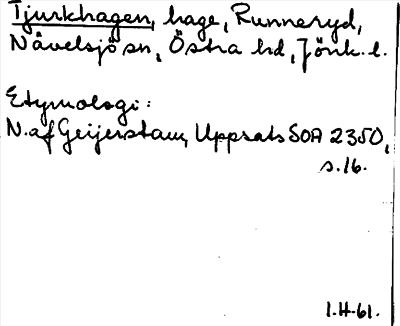 Tjurkhagen, hage, Runneryd,
Nävelsjö sn, Östra hd, Jönk. l.
Etymologi:
N. af Geijerstam, Uppsats SOA 2350,
s. 16.
1.H.61.